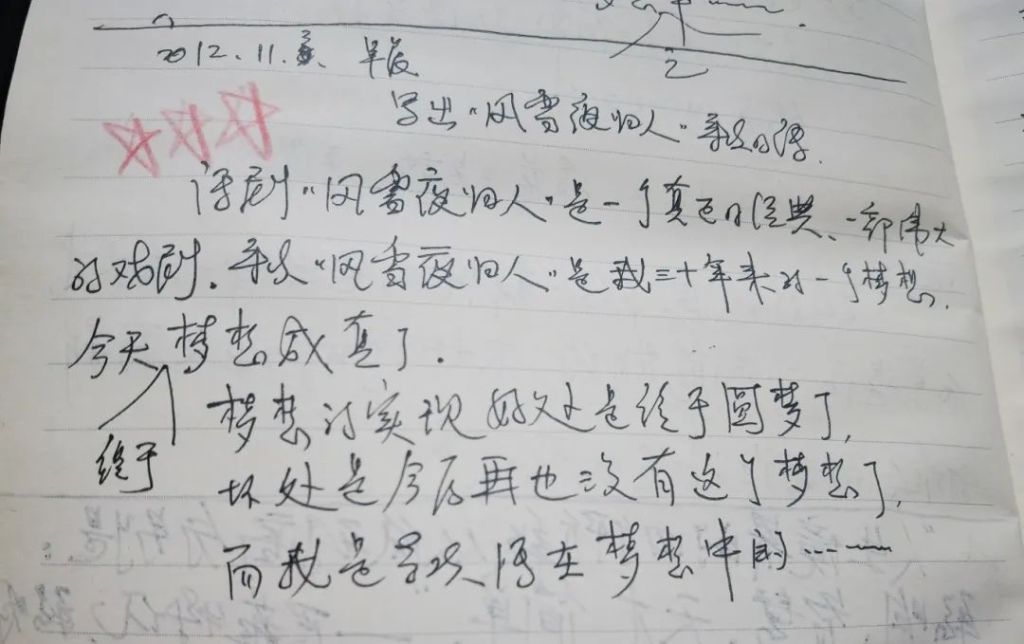 2012.11.
写出“风雪夜归人”的话.
话剧“风雪夜归人”是一个真正的经典、一部伟大
的戏剧. “风雪夜归人”是我三十年来的一个梦想.
今天梦想成真了.
终于
梦想的实现好处是终于圆梦了,
坏处是今后再也没有这个梦想了,
而我是喜欢活在梦想中的……